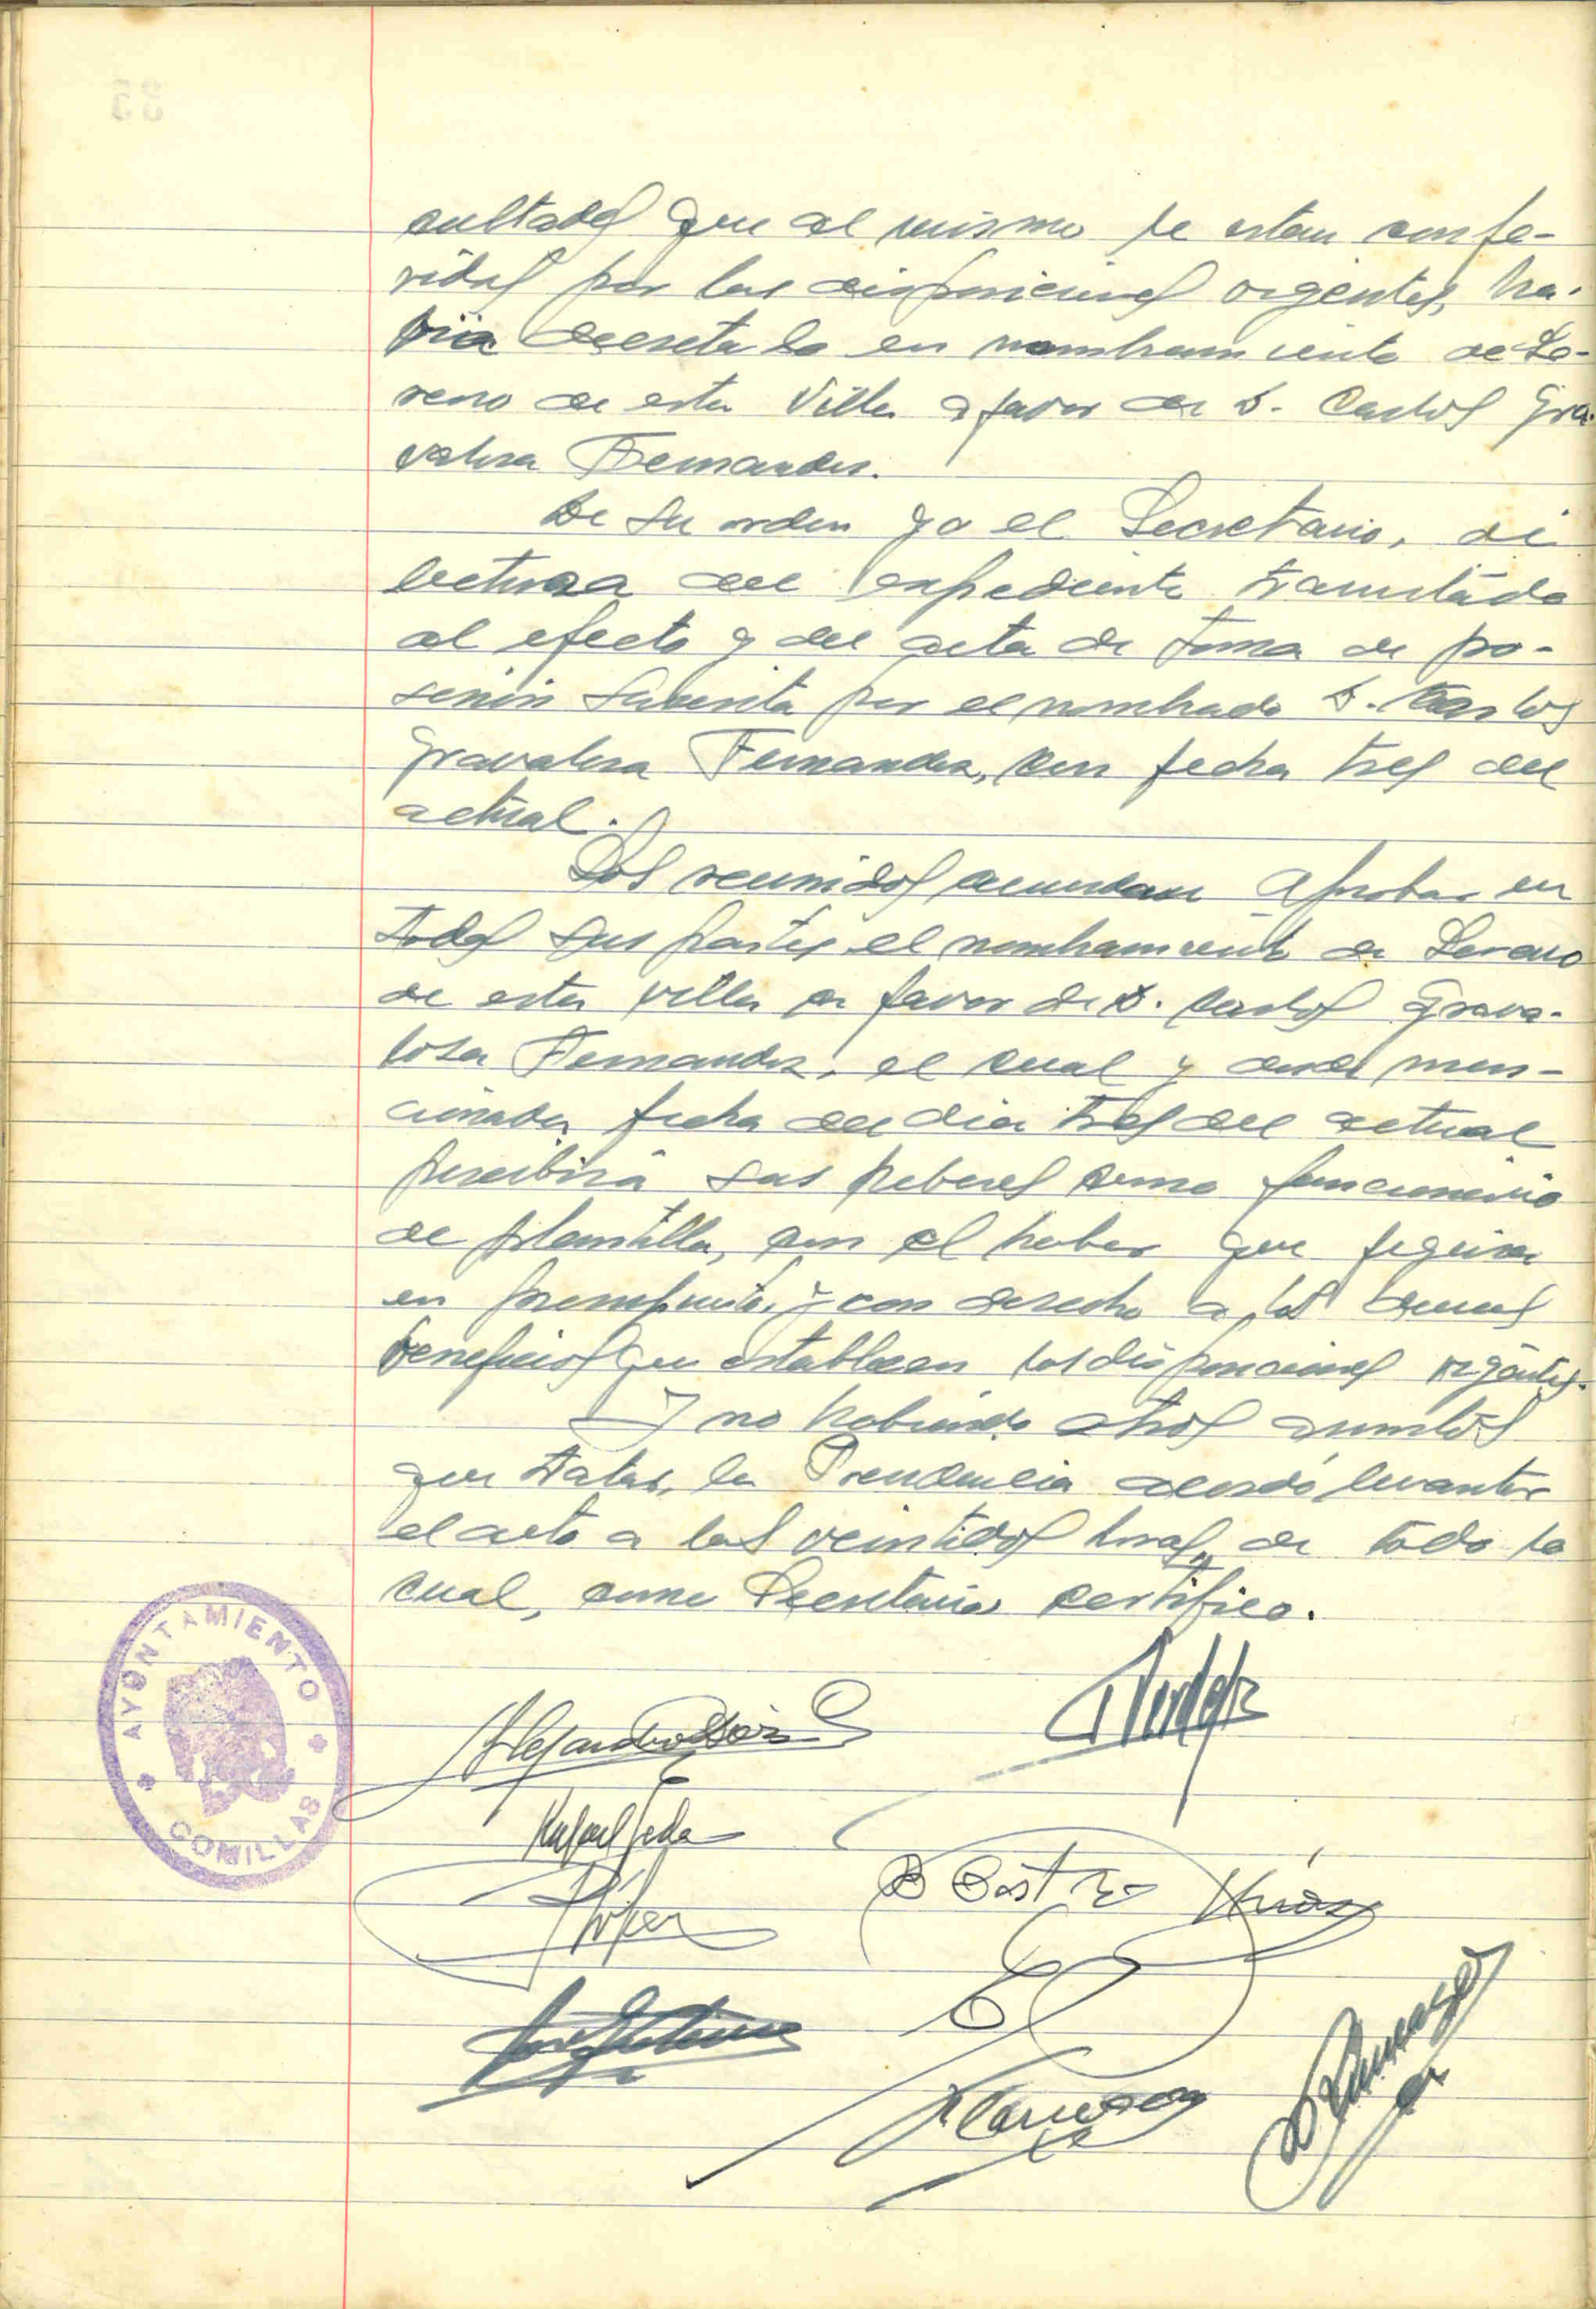 cultades que al mismo le estan confe-
ridas por las disposiciones vigentes, ha-
bia decretado en nombramiento de Se-
reno de esta Villa a favor de D. Carlos Gra-
valosa Fernandez.
De su orden yo el Secretario, di
lectura del expediente tramitado
al efecto y del acta de toma de po-
sesión suscrita por el nombrado D. Carlos
Gravalosa Fernandez, con fecha tres del
actual.
Los reunidos acuerdan aprobar en
todas sus partes el nombramiento de Sereno
de esta villa a favor de D. Carlos Grava-
losa Fernandez, el cual y desde men-
cionada fecha del dia tres del actual
percibirá sus haberes como funcionario
de plantilla, con el haber que figura
en presupuesto, y con derecho a los demas
beneficios que establecen las disposiciones vigentes.
Y no habiendo otros asuntos
que tratar, la Presidencia acordó levantar
el acto a las veintidos horas, de todo lo
cual, como Secretario certifico.
AYUNTAMIENTO
COMILLAS
Rafael